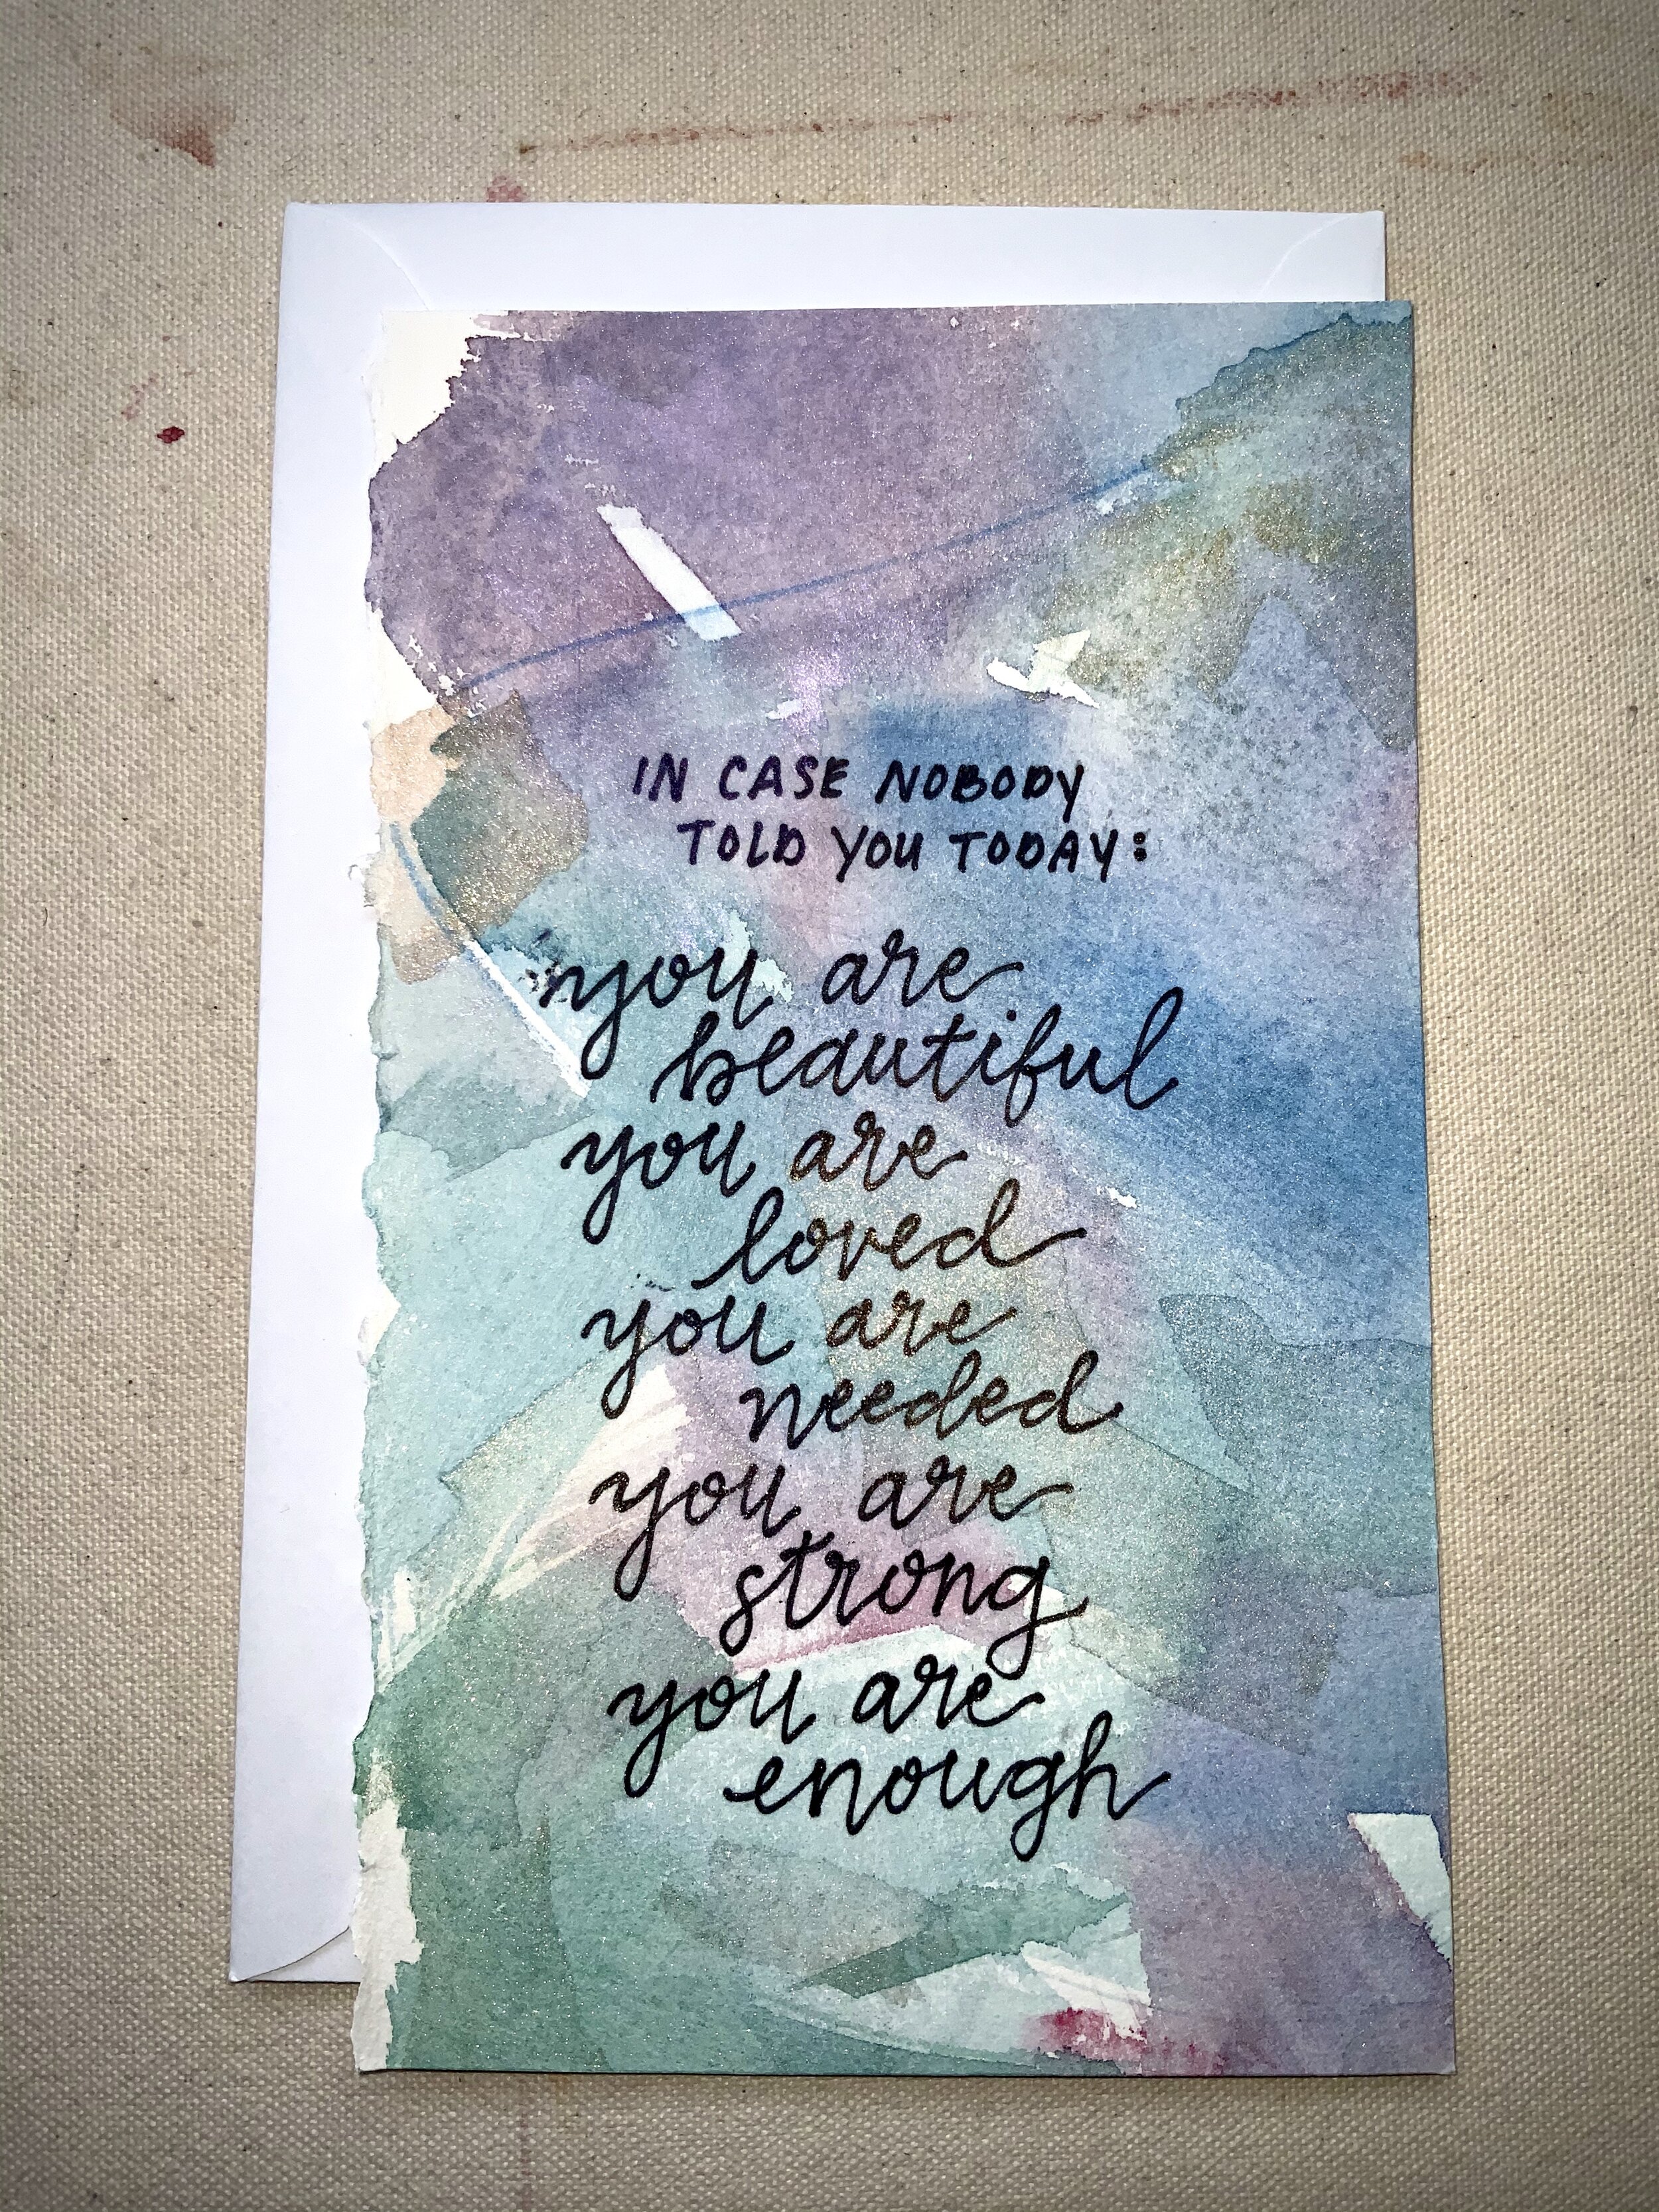 IN CASE NOBODY
TOLD YOU TODAY:
you are
beautiful
you are
loved
you are
needed
you are
strong
you are
enough